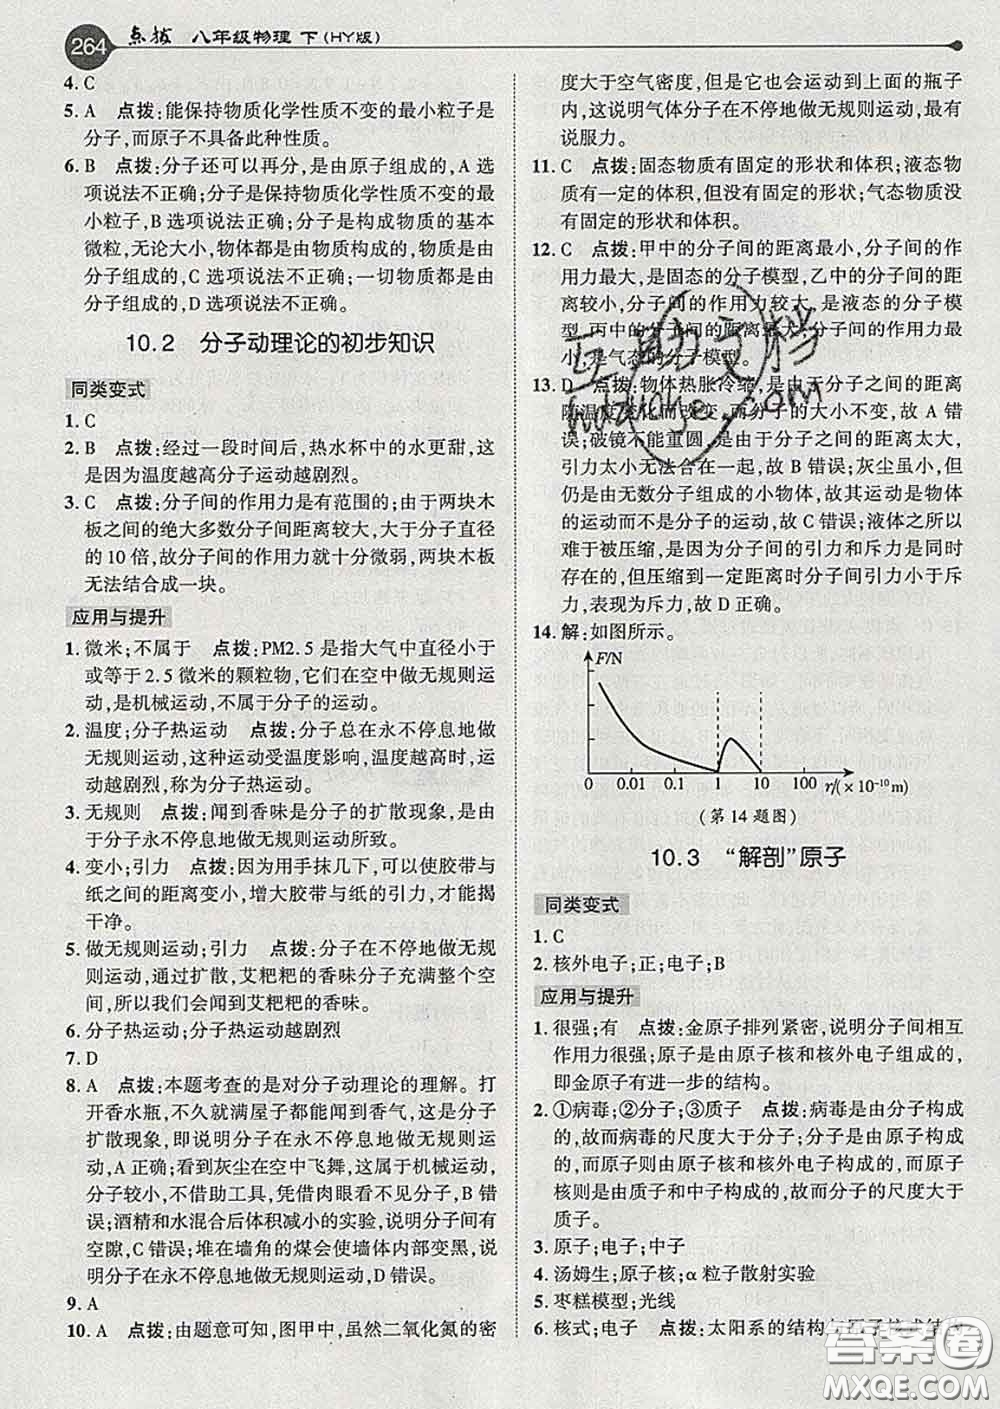 264 点拨 八年级物理 下(HY版)
4. C
5. A 点拨:能保持物质化学性质不变的最小粒子是
分子,而原子不具备此种性质。
6. B 点拨:分子还可以再分,是由原子组成的,A 选
项说法不正确;分子是保持物质化学性质不变的最
小粒子,B 选项说法正确;分子是构成物质的基本
微粒,无论大小,物体都是由物质构成的,物质是由
分子组成的,C 选项说法不正确;一切物质都是由
分子组成的,D 选项说法不正确。
10.2 分子动理论的初步知识
同类变式
1. C
2. B 点拨:经过一段时间后,热水杯中的水更甜,这
是因为温度越高分子运动越剧烈。
3. C 点拨:分子间的作用力是有范围的;由于两块木
板之间的绝大多数分子间距离较大,大于分子直径
的 10 倍,故分子间的作用力就十分微弱,两块木板
无法结合成一块。
应用与提升
1. 微米;不属于 点拨:PM2.5 是指大气中直径小于
或等于 2.5 微米的颗粒物,它们在空中做无规则运
动,是机械运动,不属于分子的运动。
2. 温度;分子热运动 点拨:分子总在永不停息地做
无规则运动,这种运动受温度影响,温度越高时,运
动越剧烈,称为分子热运动。
3. 无规则 点拨:闻到香味是分子的扩散现象,是由
于分子永不停息地做无规则运动所致。
4. 变小;引力 点拨:因为用手抹几下,可以使胶带与
纸之间的距离变小,增大胶带与纸的引力,才能揭
干净。
5. 做无规则运动;引力 点拨:分子在不停地做无规
则运动,通过扩散,艾粑粑的香味分子充满整个空
间,所以我们会闻到艾粑粑的香味。
6. 分子热运动;分子热运动越剧烈
7. D
8. A 点拨:本题考查的是对分子动理论的理解。打
开香水瓶,不久就满屋子都能闻到香气,这是分子
扩散现象,即说明分子在永不停息地做无规则运
动,A 正确;看到灰尘在空中飞舞,这属于机械运动,
分子较小,不借助工具,凭借肉眼看不见分子,B 错
误;酒精和水混合后体积减小的实验,说明分子间有
空隙,C 错误;堆在墙角的煤会使墙体内部变黑,说
明分子在永不停息地做无规则运动,D 错误。
9. A
10. A 点拨:由题意可知,图甲中,虽然二氧化氮的密
度大于空气密度,但是它也会运动到上面的瓶子
内,这说明气体分子在不停地做无规则运动,最有
说服力。
11. C 点拨:固态物质有固定的形状和体积;液态物
质有一定的体积,但没有固定的形状;气态物质没
有固定的形状和体积。
12. C 点拨:甲中的分子间的距离最小,分子间的作
用力最大,是固态的分子模型,乙中的分子间的距
离较小,分子间的作用力较大,是液态的分子模
型,丙中的分子间的距离最大,分子间的作用力最
小,是气态的分子模型。
13. D 点拨:物体热胀冷缩,是由于分子之间的距离
随温度变化而改变,而分子的大小不变,故 A 错
误;破镜不能重圆,是由于分子之间的距离太大,
引力太小无法合在一起,故 B 错误;灰尘虽小,但
仍是由无数分子组成的小物体,故其运动是物体
的运动而不是分子的运动,故 C 错误;液体之所以
难于被压缩,是因为分子间的引力和斥力是同时
存在的,但压缩到一定距离时分子间引力小于斥
力,表现为斥力,故 D 正确。
14. 解:如图所示。
F/N
0 0.01 0.1 1 10 100 r/(×10⁻¹⁰m)
(第 14 题图)
10.3 “解剖”原子
同类变式
1. C
2. 核外电子;正;电子;B
应用与提升
1. 很强;有 点拨:金原子排列紧密,说明分子间相互
作用力很强;原子是由原子核和核外电子组成的,
即金原子有进一步的结构。
2. ①病毒;②分子;③质子 点拨:病毒是由分子构成
的,故而病毒的尺度大于分子;分子是由原子构成
的,而原子则由原子核和核外电子构成的,而原子
核是由质子和中子构成的,故而分子的尺度大于
质子。
3. 原子;电子;中子
4. 汤姆生;原子核;α 粒子散射实验
5. 枣糕模型;光线
6. 核式;电子 点拨:太阳系的结构与原子核式结
互助文档
hdzuoye.com
答案圈
MXQE.COM